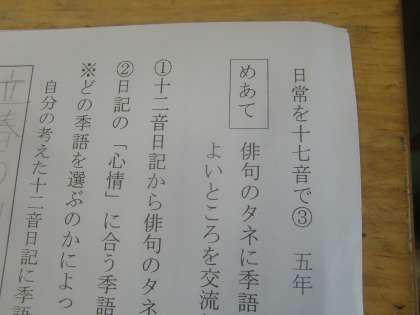 日常を十七音で③　五年
めあて　俳句のタネに季語
よいところを交流
①十二音日記から俳句のタネ
②日記の「心情」に合う季語
※どの季語を選ぶのかによっ
自分の考えた十二音日記に季語
立春の